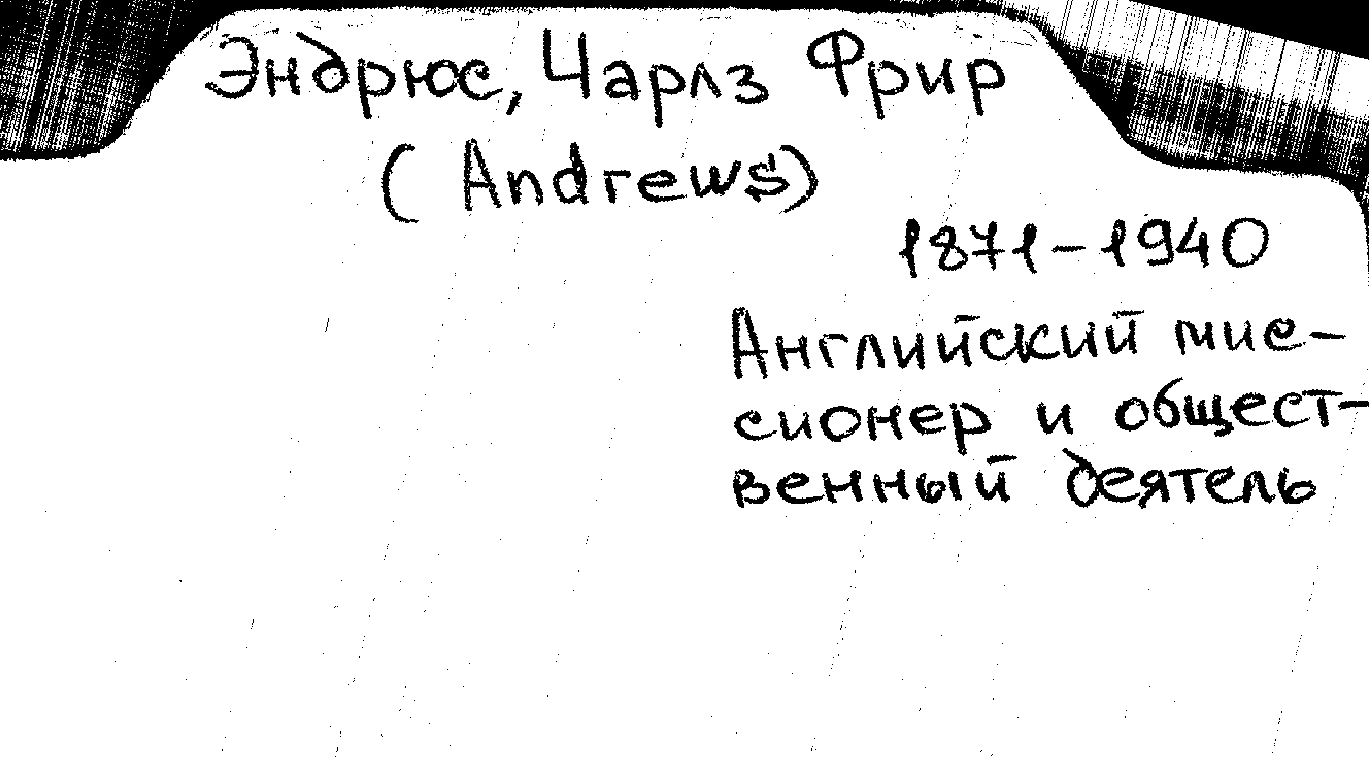 Эндрюс, Чарлз Фрир
(Andrews)
1871-1940
Английский мис-
сионер и общест-
венный деятель